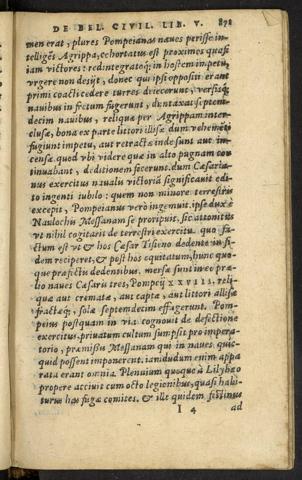 DE BEL. CIVIL. LIB. V. 878
men erat, plures Pompeianas naues perisse in-
telligēs Agrippa, cohortatus est proximos quasi
iam victores: redintegratoq; in hostem impetu,
vrgere non desijt, donec qui ipsi oppositi erant
primi coacti cedere turres deiecerunt, versisq;
nauibus in fretum fugerunt, duntaxat septem-
decim nauibus, reliquæ per Agrippam inter-
clusæ, bona ex parte littori illisæ dum vehemēti
fugiunt impetu, aut retractæ inde sunt aut in-
censæ. quod vbi videre quæ in alto pugnam con-
tinuabant, deditionem fecerunt. dum Cæsaria-
nus exercitus naualu victoriā significauit edi-
to ingenti iubilo: quem non minore terrestris
excepit, Pompeianus verò ingemuit. ipse dux è
Naulochis Messanam se proripuit, sic attonitus
vt nihil cogitarit de terrestri exercitu. quo fa-
ctum est vt & hos Cæsar Tiseno dedente in fi-
dem reciperet, & post hos equitatum, hunc quo-
que præfectis dedentibus. mersæ sunt in eo præ-
lio naues Cæsaris tres, Pompeij XXVIII, reli-
quæ aut crematæ, aut captæ, aut littori allisæ
fractæq;, solæ septemdecim effugerunt. Pom-
peius postquam in via cognouit de defectione
exercitus, priuatum cultum sumpsit pro impera-
torio, præmisitq; Messanam qui in naues, quic-
quid possent imponerent. iandudum enim appa
rata erant omnia. Plenuium quoque à Lilybæo
propere acciuit cum octo legionibus, quasi habi-
turus has fugæ comites. & ille quidem festinus
I 4 ad